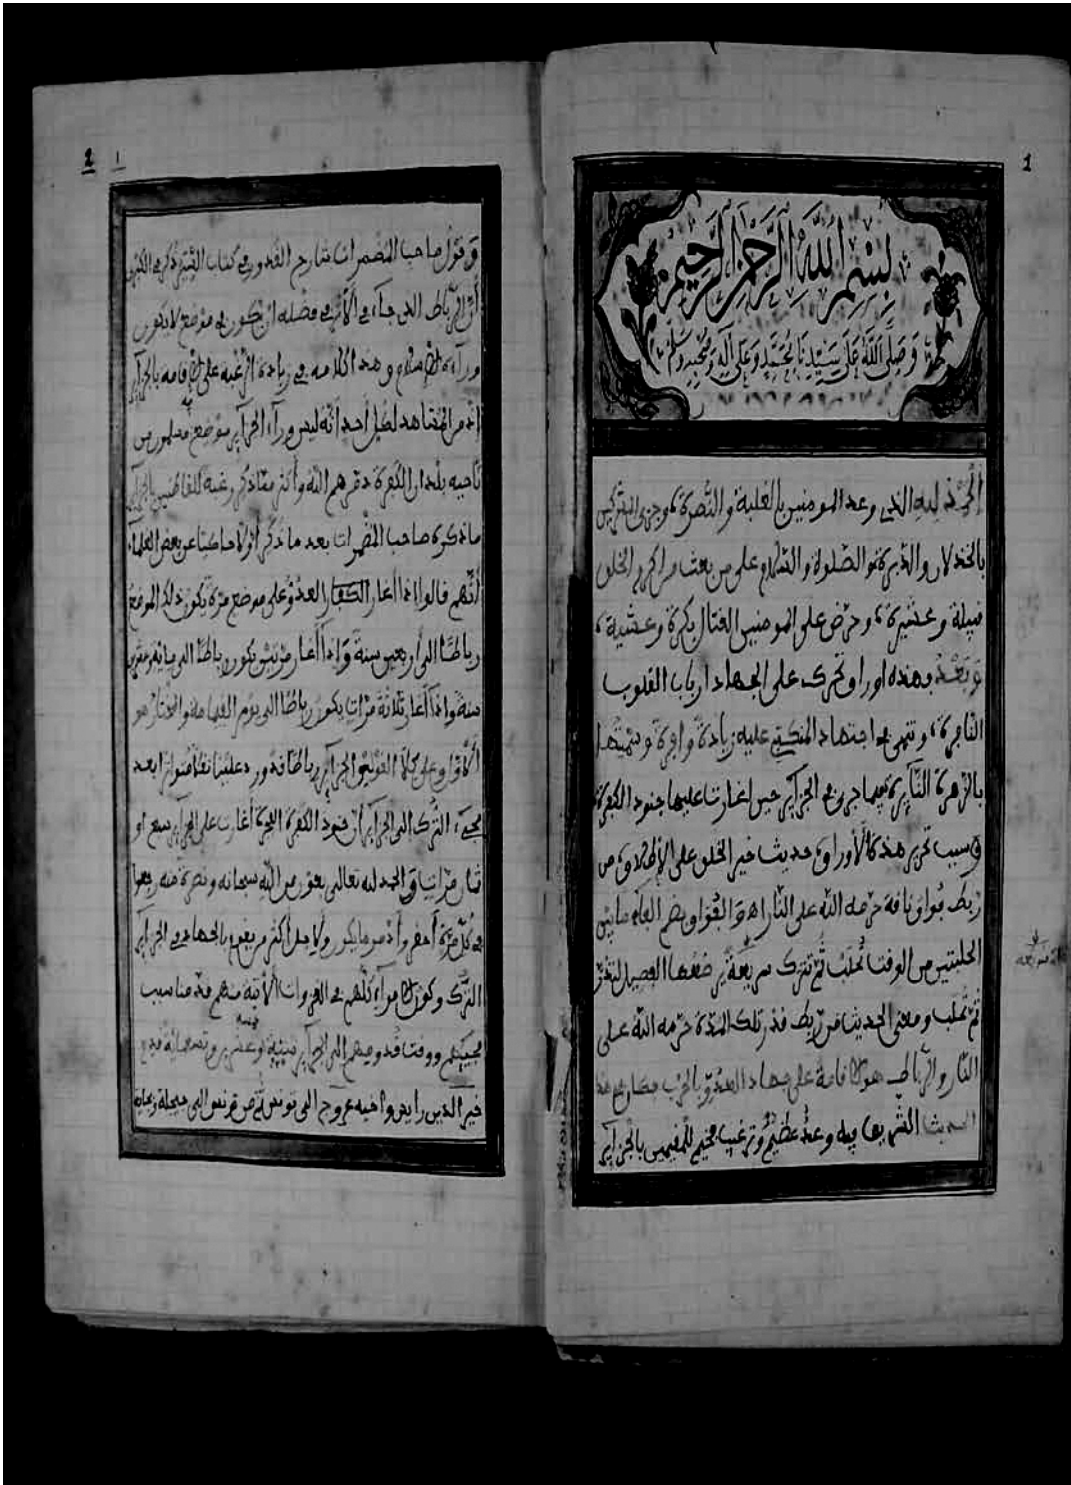 1
بسم الله الرحمن الرحيم
وصلى الله على سيدنا محمد وعلى آله وصحبه وسلم
الحمد لله الذي وعد المومنين بالغلبة والنصرة، وجزى المشركين
بالخذلان والدبرة والصلوة والسلام على من بعث من اكرم الخلق
فبيلة وعشيرة، وحرض على المومنين القتال بكرة وعشية،
وبعد فهذه اوراق تحرك على الجهاد ارباب القلوب
النافرة، وتنهى اجتهاد المنكب عليه زيادة وافرة وسميتها
بالزهرة النآيرة فيما جرى في الجزآير حين اغارت عليها جنود الكفرة
وسبب تحرير هذه الأوراق حديث خير الخلق على الإطلاق من
ربط فواق ناقة حرمه الله على النار اه والفواق بضم الفاء ما بين
الحلبتين من الوقت تحلب ثم تترك سريعة يرضعها الفصيل لتدر
ثم تحلب ومعنى الحديث من ربط قدر تلك المدة حرمه الله على
النار والرباط هو الاقامة على جهاد العدو بالحرب فصار في هذا
الحديث الشريف فيه وعد عظيم وترغيب فخيم للمقيمين بالجزآير
2 ١
وقول صاحب المضمرات شارح القدوري في كتاب السير ذكر في الكبرى
أن الرباط الذي جآء في الأثر في فضله ان يكون في موضع لا يكون
ورآءه الإسلام وهذا الكلام فيه زيادة الرغبة على الإقامة بالجزآير
اذ من المشاهد لكل أحد انه ليس ورآء الجزآير موضع مسلمون من
ناحيه بلدان الكفرة دمرهم الله وأكثر مما ذكر رغبة للقاطنين بالجزآير
ما ذكره صاحب المضمرات بعد ما ذكر أولا حاكيا عن بعض العلمآء
أنهم قالوا اذا أغار الكفار العدو على موضع مرة يكون ذلك الموضع
رباطا الى أربعين سنة وإذا أغار مرتين يكون رباطا الى مائة وعشرين
سنة واذا أغار ثلاثة مرات يكون رباطا الى يوم القيامة والمختار هو
الأول وعلى كلا القولين الجزآير رباط قد ورد علينا نقلا متواترا بعد
مجيء الترك الى الجزآير أن جنود الكفرة الفجرة أغارت على الجزآير سبع او
ثمان مرات والحمد لله تعالى بعون من الله سبحانه ونصرة منه رجعوا
في كل مرة أحقر وأذل ما يكون ولاجل أكثر من يقوم بالجهاد في الجزآير
الترك وكون الامرآء كلهم في الغزوات الآتية منهم قدمنا سبب
مجيئهم ووقت قدومهم الى الجزآير سنة وعشرين وتسعمائة قدم
خير الدين رايس واخيه عروج الى تونس ثم من تونس الى جيجلة